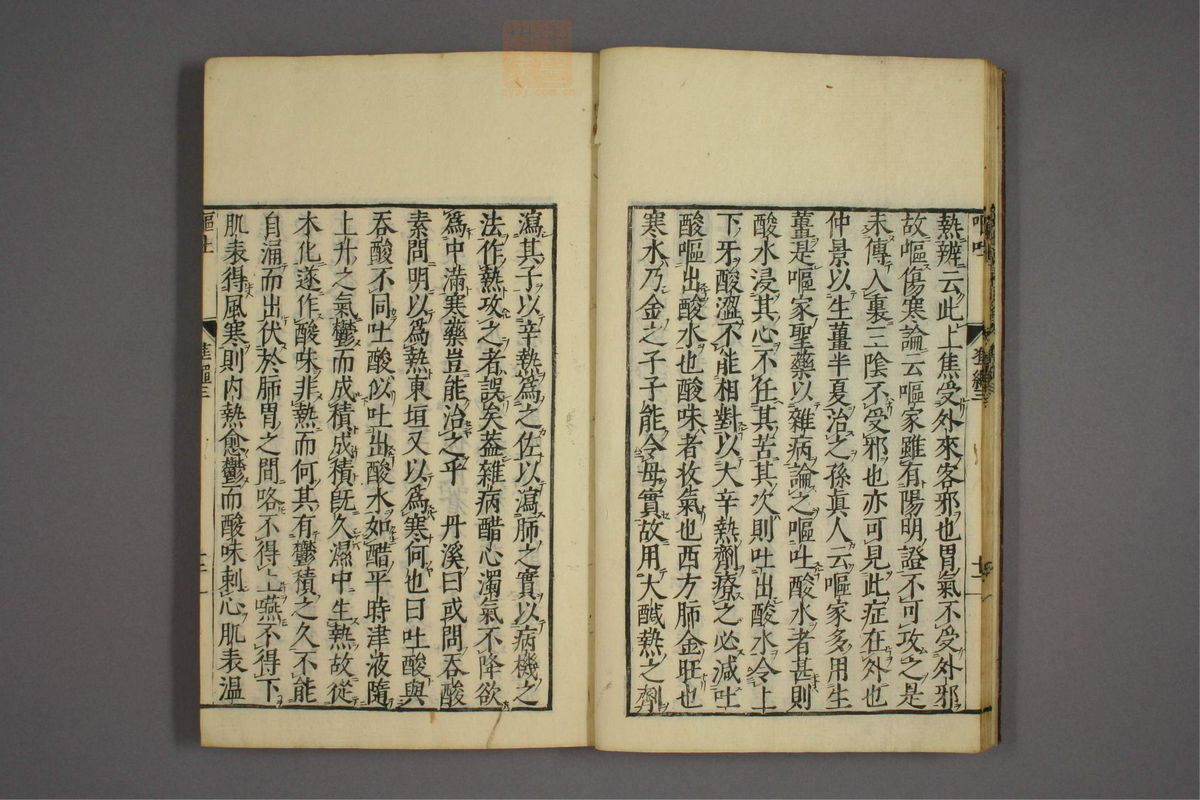 熱辨云此上焦受外來客邪也胃氣不受外邪
故嘔傷寒論云嘔家雖有陽明證不可攻之是
未傳入裏三陰不受邪也亦可見此症在外也
仲景以生薑半夏治之孫眞人云嘔家多用生
薑是嘔家聖藥以雜病論之嘔吐酸水者甚則
酸水浸其心不任其苦其次則吐出酸水令上
下牙酸澀不能相對以大辛熱劑療之必減吐
酸嘔出酸水也酸味者收氣也西方肺金旺也
寒水乃金之子子能令母實故用大醎熱之劑
瀉其子以辛熱爲之佐以瀉肺之實以病機之
法作熱攻之者誤矣蓋雜病醋心濁氣不降欲
爲中滿寒藥豈能治之乎 丹溪曰或問吞酸
素問明以爲熱東垣又以爲寒何也曰吐酸與
吞酸不同吐酸似吐出酸水如醋平時津液隨
上升之氣鬱而成積成積既久濕中生熱故從
木化遂作酸味非熱而何其有鬱積之久不能
自涌而出伏於肺胃之間咯不得上嚥不得下
肌表得風寒則内熱愈鬱而酸味刺心肌表温
嘔吐